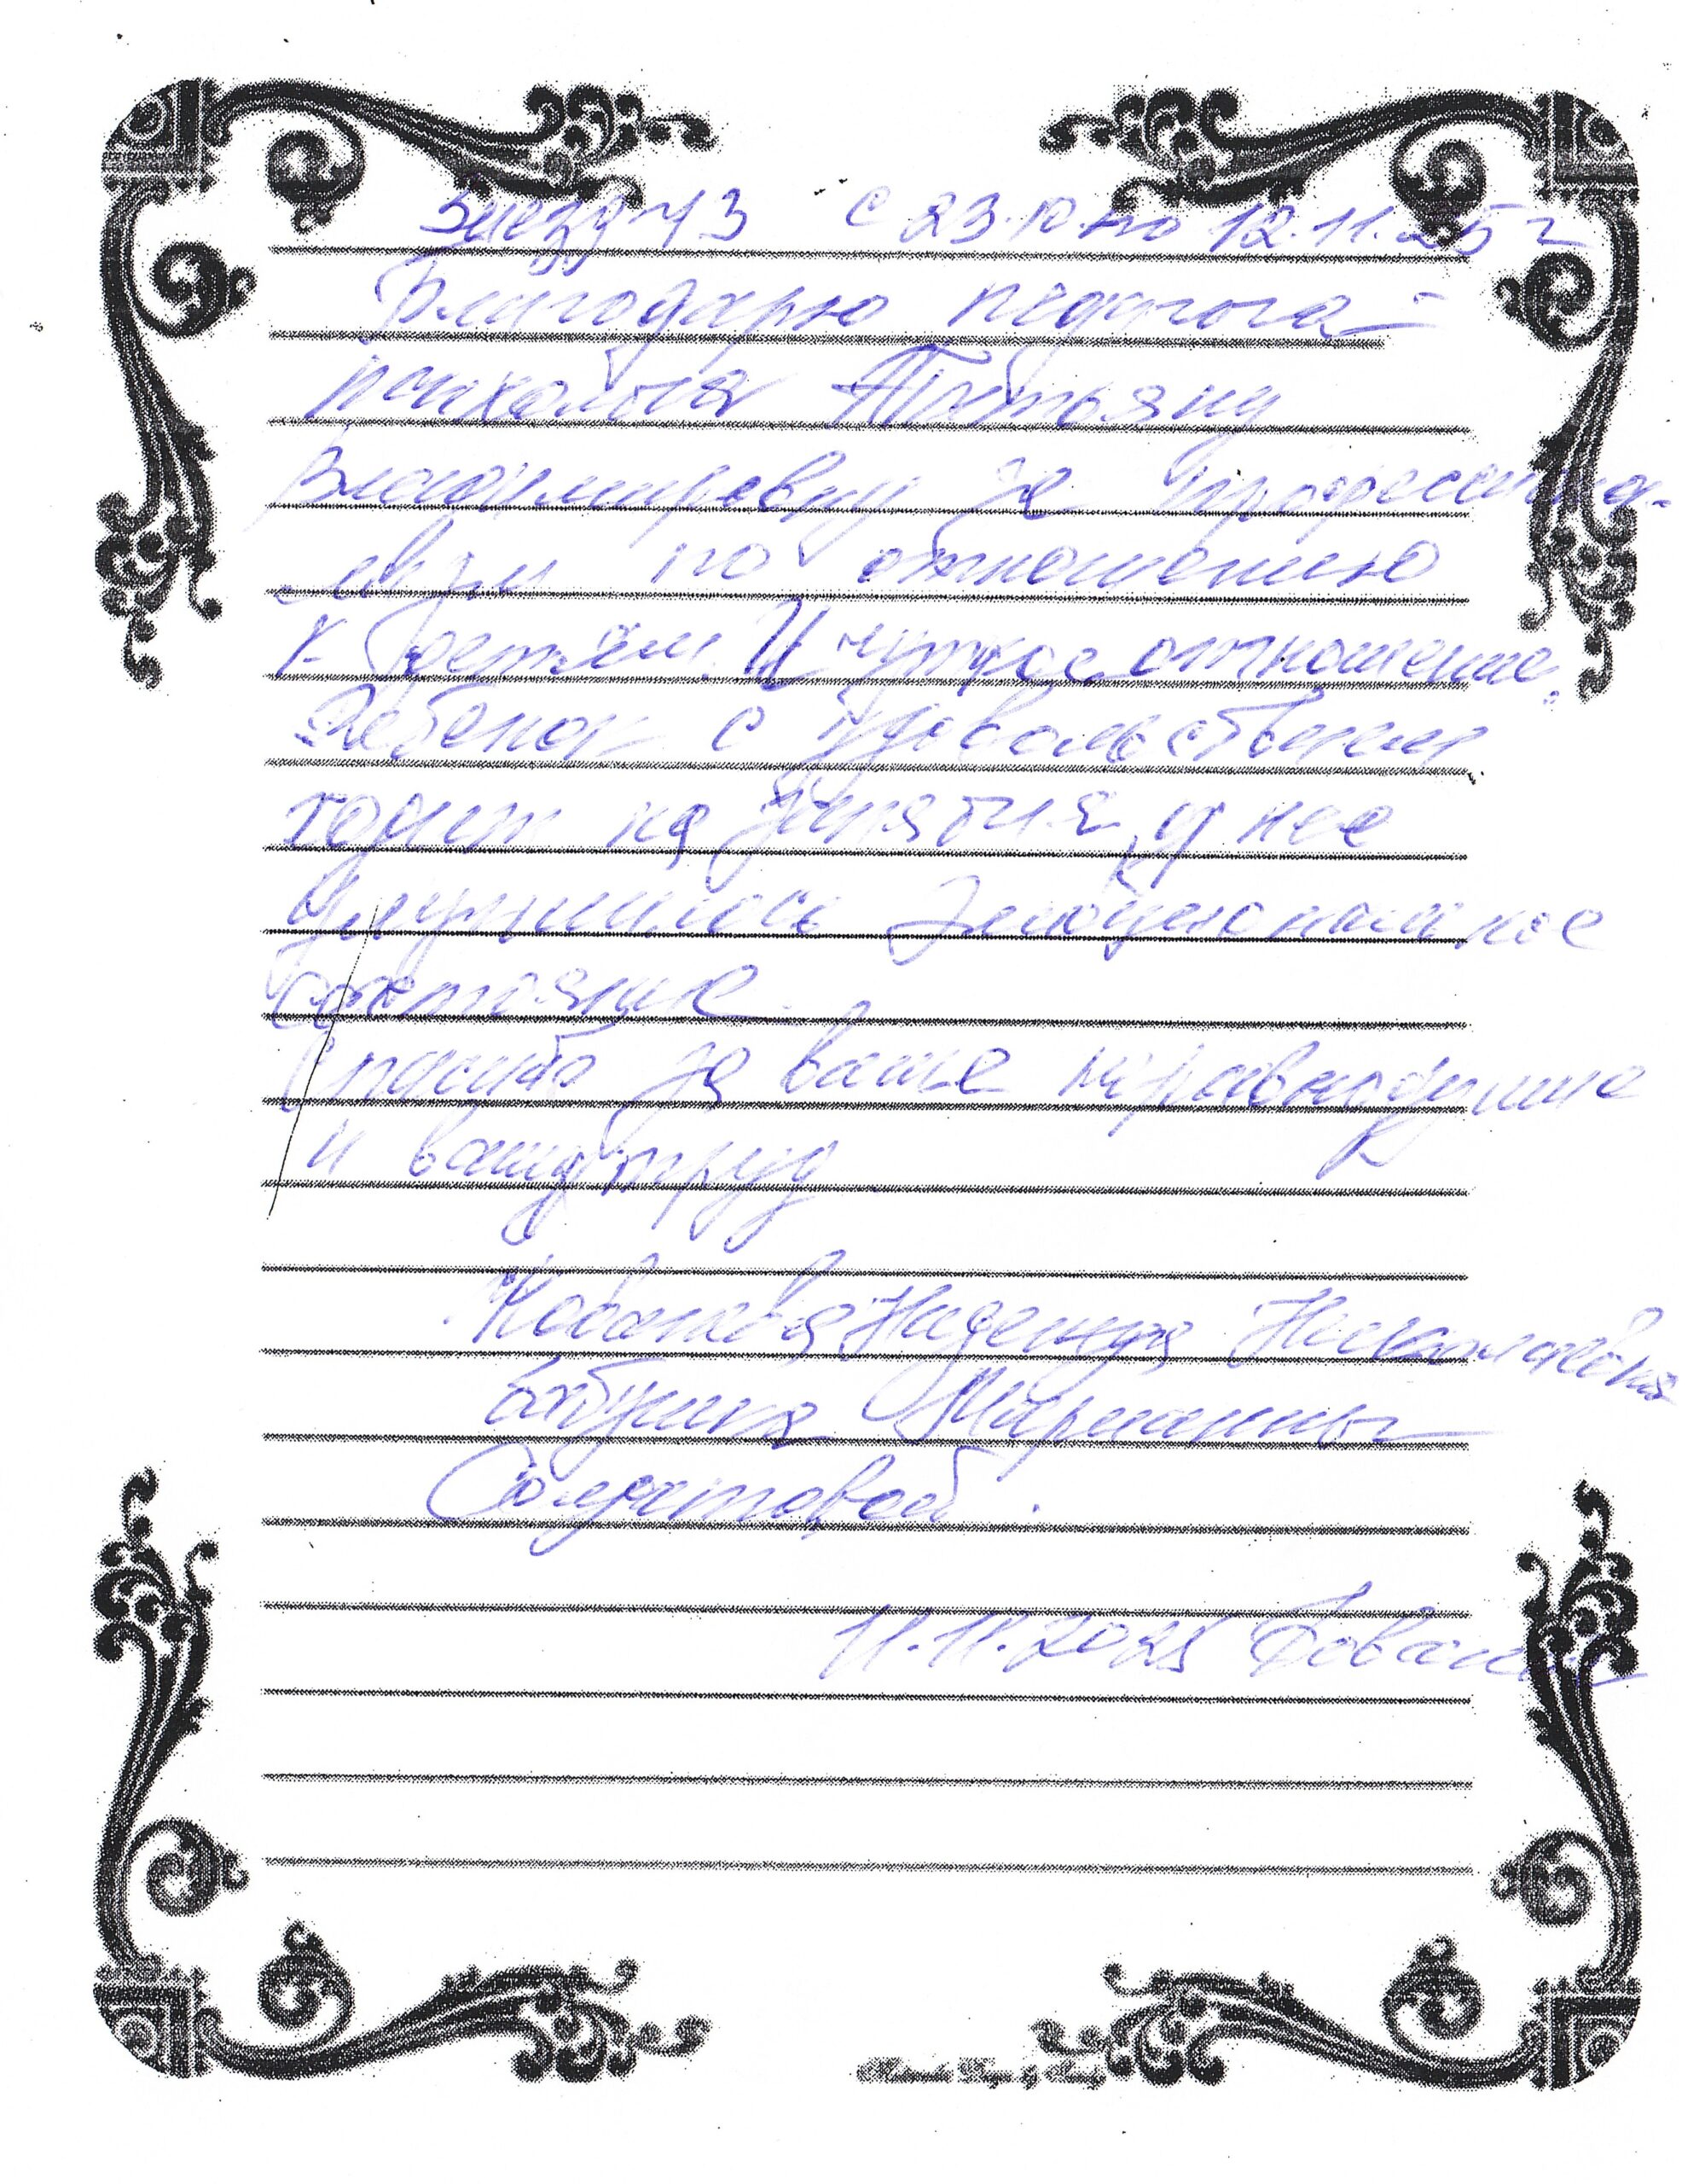 Заезд 13 с 23.10 по 12.11.25 г
Благодарю педагога-
психолога Татьяну
Владимировну за профессиона-
лизм по отношению
к детям. И чуткое отношение.
Ребенок с удовольствием
ходит на занятия, у нее
улучшилось эмоциональное
состояние
Спасибо за ваше неравнодушие
и ваш труд
Надежда Николаевна
бабушка Марианны
Солдатовой.
11.11.2025